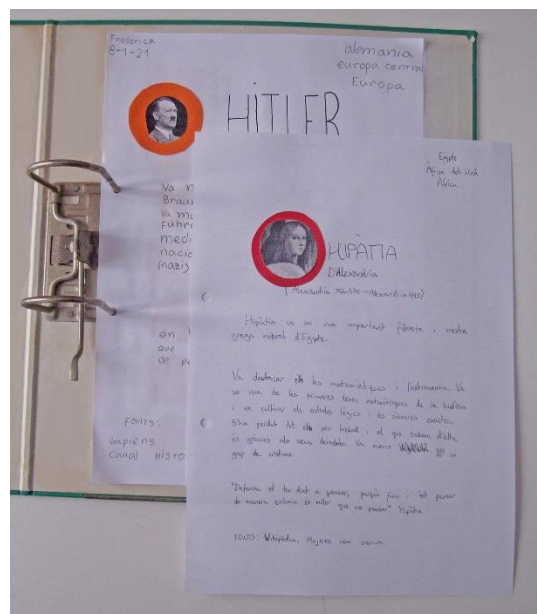 Frederica
8-1-21
alemania
europa central
Europa
HITLER
Va n
Brau
Va mo
Führe
medi
nacio
(nazi)
que
de p
FONTS:
sapiens
canal HISTO
Egipte
Àfrica del Nord
Àfrica
HIPÀTIA
D'Alexandria
(Alexandria
Hipàtia va ser una important filòsofa i mestra
grega natural d'Egipte.
Va destacar en les matemàtiques i l'astronomia. Va
ser una de les primeres dones matemàtiques de la història
i va cultivar els estudis lògics i les ciències exactes.
S'ha perdut tot el seu treball i el que sabem d'ella
és gràcies als seus deixebles. Va morir
grup de cristians.
"Defensa el teu dret a pensar, perquè fins i tot pensar
de manera errònia és millor que no pensar" Hipàtia
FONTS: Wikipèdia, Mujeres con ciencia